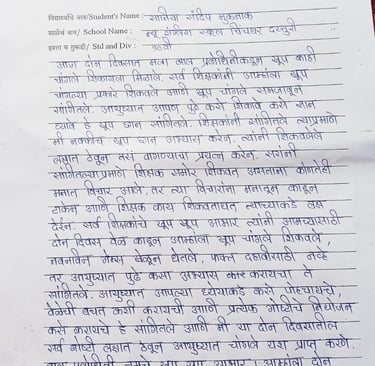 विद्यार्थ्याचे नाव/Student's Name :- सानिया संदिप मुकनाक
शाळेचं नाव/ School Name :- न्यू इंग्लिश स्कूल चिंचघर
इयत्ता व तुकडी/ Std and Div :- १०वी
आज दोन दिवसात मला बाल प्रबोधिनीकडून खूप काही
चांगले शिकायला मिळाले. सर्व शिक्षकांनी आम्हाला खूप
चांगल्या प्रकारे शिकवले आणि खूप चांगले समजावून
सांगितले. आयुष्यात आपण पुढे कसे शिकावे कसे ज्ञान
घ्यावे हे खूप छान सांगितले. शिक्षकांनी सांगितले त्याप्रमाणे
मी नक्कीच खूप छान अभ्यास करेन. त्यांनी शिकवलेले
लक्षात ठेवून तसं वागण्याचा प्रयत्न करेन. सरांनी
सांगितल्याप्रमाणे शिक्षक समोर शिकवत असताना कोणतेही
मनात विचार आले, तर त्या विचारांना मनातून काढून
टाकेन आणि शिक्षक काय शिकवतायत त्याच्याकडे लक्ष
देईन. सर्व शिक्षकांचे खूप खूप आभार त्यांनी आमच्यासाठी
दोन दिवस वेळ काढून आम्हाला खूप चांगले शिकवले,
नवनवीन गेम्स खेळून घेतले, फक्त दहावीसाठी नव्हे
तर आयुष्यात पुढे कसा अभ्यास करायचा ते
सांगितले. आयुष्यात आपल्या ध्येयाकडे कसे पोहचायचे,
वेळेची बचत कशी करायची आणि प्रत्येक गोष्टीचे नियोजन
कसे करायचे हे सांगितले आणि मी या दोन दिवसातील
सर्व गोष्टी लक्षात ठेवून आयुष्यात चांगले यश प्राप्त करेन.